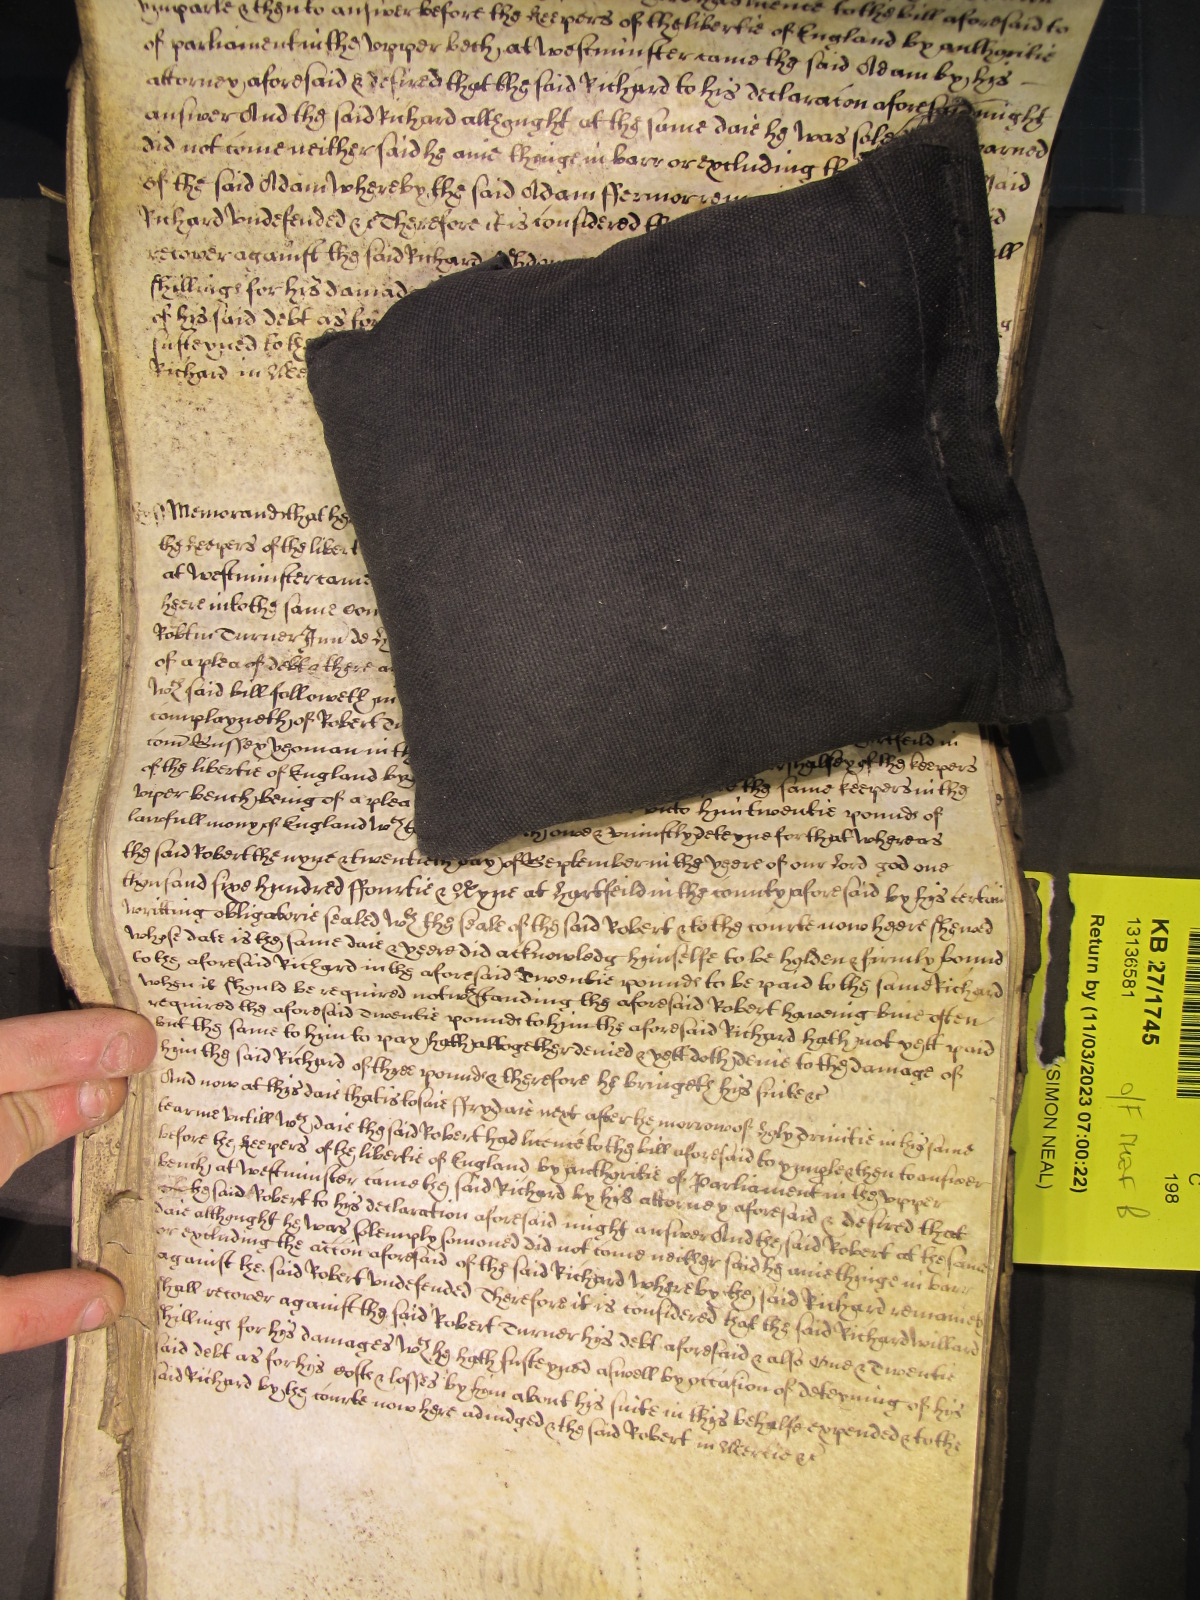 ymparle & then to answer before the keepers of the libertie of England by authoritie
of parliament in the upper bench at Westminster came the said Adam by his
attorney aforesaid & desired that the said Richard to his declaracon aforesaid might
answer And the said Richard althought at the same daie he was
did not come neither said he anie thinge in barr or excluding
of the said Adam Whereby the said Adam ffermor said
Richard undefended &c Therefore it is considered
recover against the said Richard
shillings for his
of his said debt as for
susteyned to
Richard in
Memorand that
the keepers of the
at Westminster came
heere into the same
Robtm Turner
of a plea of debt & there
said bill followeth
complayneth of Robert
com Sussex yeoman in
of the libertie of England by of the keepers
upper bench being of a plea the same keepers in the
lawfull mony of England unto him twentie pounds of
owe & uniustly deteyne for that Whereas
the said Robert the nyne & twentieth day of September in the yeere of our Lord god one
thousand sixe hundred ffourtie & Nyne at Hartfeild in the county aforesaid by his certen
writting obligatorie sealed wth the seale of the said Robert & to the courte now heere shewed
whose date is the same daie & yeere did acknowledg himselfe to be holden & firmly bound
to the aforesaid Richard in the aforesaid Twentie pounds to be paid to the same Richard
when is should be required notwthstanding the aforesaid Robert haveing bine often
required the aforesaid Twentie pounds to him the aforesaid Richard hath not yett paid
but the same to him to pay hath altogether denied & yett doth denie to the damage of
him the said Richard of three pounds & therefore he bringeth his suite &c
And now at this daie that is to saie ffrydaie next after the morrow of Holy Trinitie in this same
tearme untill wch daie the said Robert had licence to the bill aforesaid to ymple & then to answer
before the keepers of the libertie of England by authoritie of Parliament in the upper
bench at Westminster came the said Richard by his attorney aforesaid & desired that
the said Robert to his declaration aforesaid might answer And the said Robert at the same
daie althought he was solemply somoned did not come neither said he anie thinge in barr
or excluding the accon aforesaid of the said Richard Whereby the said Richard remaines
against the said Robert undefended Therefore it is considered that the said Richard Willard
shall recover against the said Robert Turner his debt aforesaid & also One & Twentie
shillings for his damages wch he hath susteyned aswell by occasion of deteyning of his
said debt as for his costs & losses by him about his suite in this behalfe expended & to the
said Richard by the courte now here adiudged & the said Robert in Mercie &c
KB 27/1745
13136581
Return by (11/03/2023 07:00:22)
(SIMON NEAL)
198
C